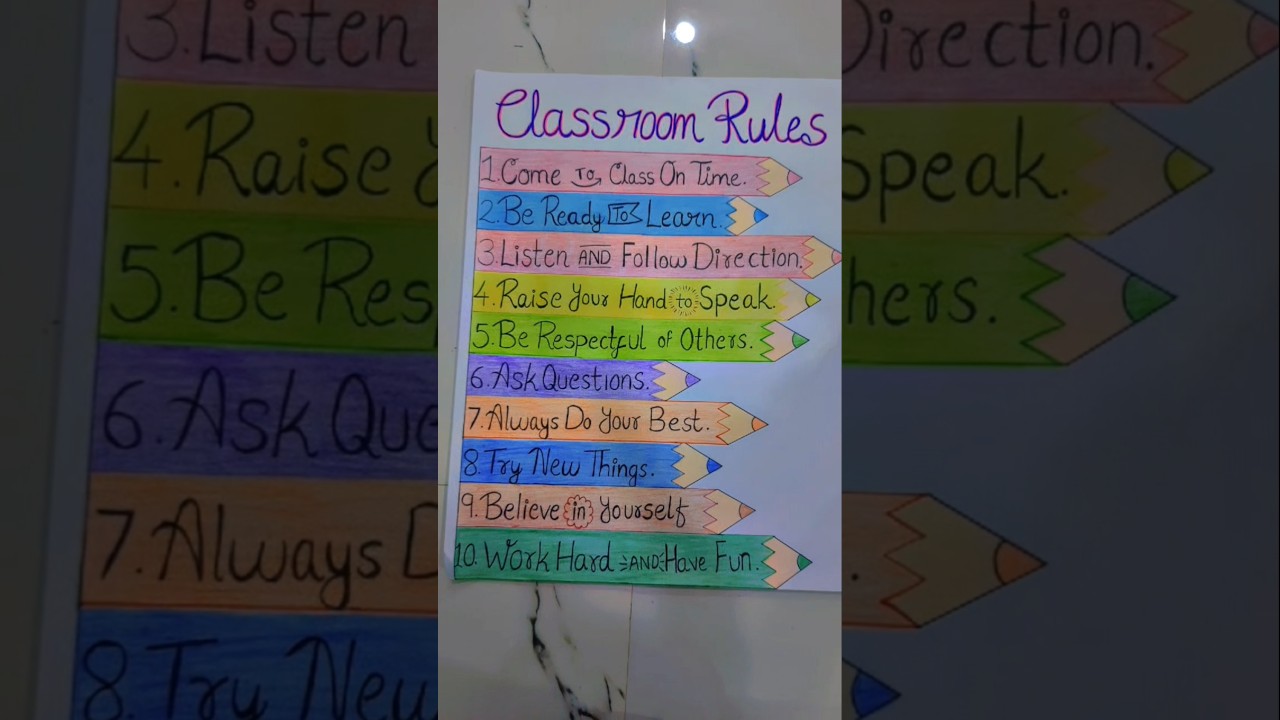 Classroom Rules
1. Come To Class On Time.
2. Be Ready To Learn.
3. Listen AND Follow Direction.
4. Raise Your Hand to Speak.
5. Be Respectful of Others.
6. Ask Questions.
7. Always Do Your Best.
8. Try New Things.
9. Believe in Yourself
10. Work Hard AND Have Fun.